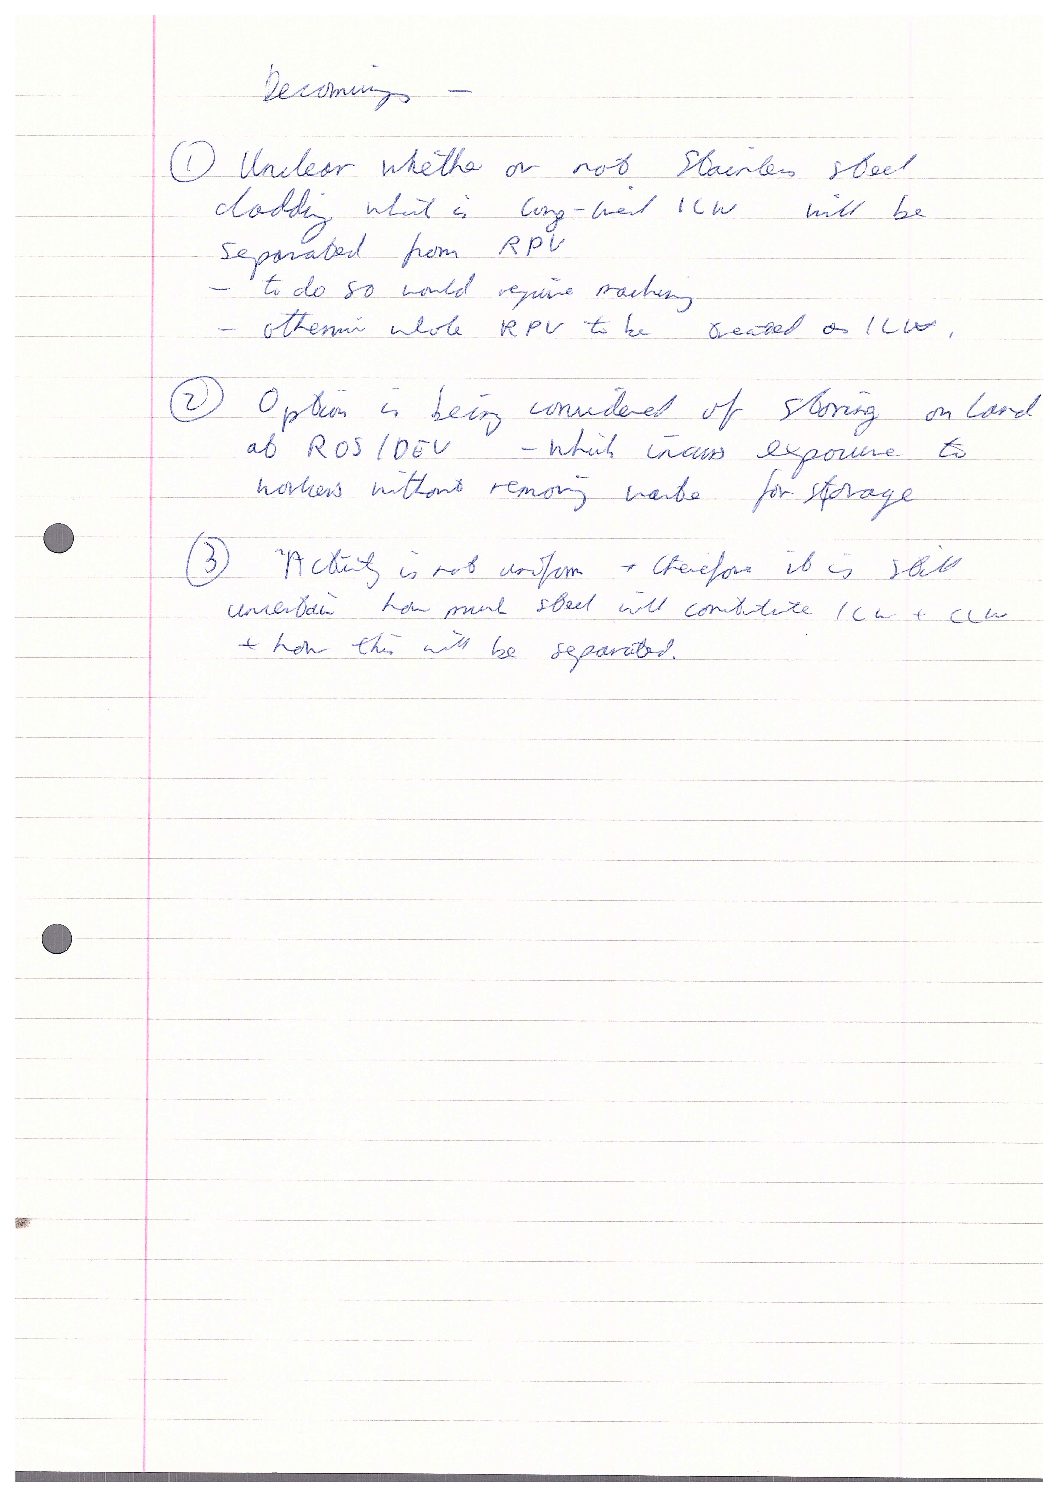 ①  Unclear whether or not Stainless steel
cladding which is long-lived ILW will be
separated from RPV
- to do so would require machining
- otherwise whole RPV to be treated as ILW.
②  Option is being considered of storing on land
at ROS/DEV - which incurs exposure to
workers without removing waste for storage
③  "Activity is not uniform + therefore it is still
uncertain how much steel will constitute ILW + LLW
+ how this will be separated.